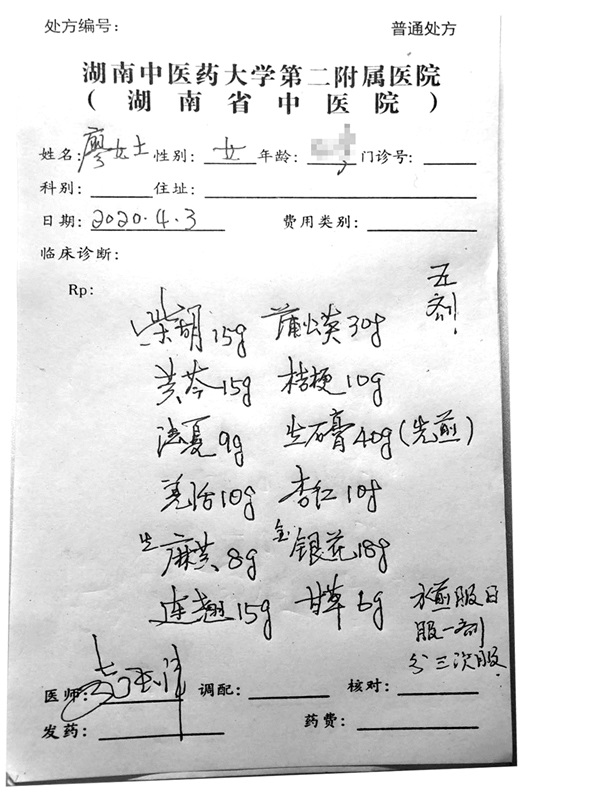 处方编号: 普通处方
湖南中医药大学第二附属医院
(湖南省中医院)
姓名: 廖女士 性别: 女 年龄: 门诊号:
科别: 住址:
日期: 2020.4.3 费用类别:
临床诊断:
Rp:
五剂
柴胡15g 蒲公英30g
黄芩15g 桔梗10g
法夏9g 生石膏40g(先煎)
羌活10g 杏仁10g
生麻黄8g 金银花18g
连翘15g 甘草6g
水煎服日
服一剂
分三次服
医师: 调配: 核对:
发药: 药费: